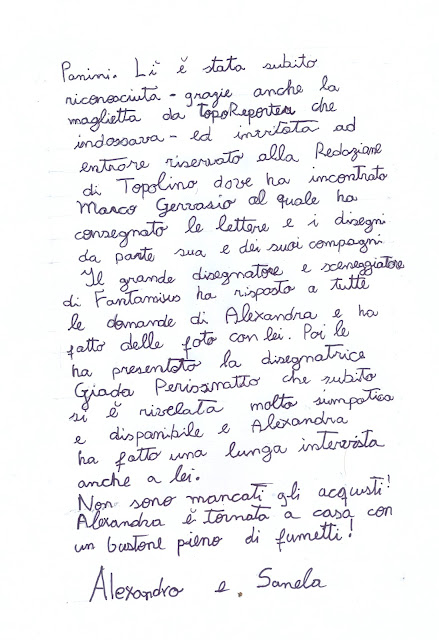 Panini. Lì è stata subito
riconosciuta - grazie anche la
maglietta da TopoReporter che
indossava - ed invitata ad
entrare riservato alla Redazione
di Topolino dove ha incontrato
Marco Gervasio al quale ha
consegnato le lettere e i disegni
da parte sua e dei suoi compagni
Il grande disegnatore e sceneggiatore
di Fantamius ha risposto a tutte
le domande di Alexandra e ha
fatto delle foto con lei. Poi le
ha presentato la disegnatrice
Giada Perissinotto che subito
si è rivelata molto simpatica
e disponibile e Alexandra
ha fatto una lunga intervista
anche a lei.
Non sono mancati gli acquisti!
Alexandra è tornata a casa con
un bustone pieno di fumetti!
Alexandra e Sanela